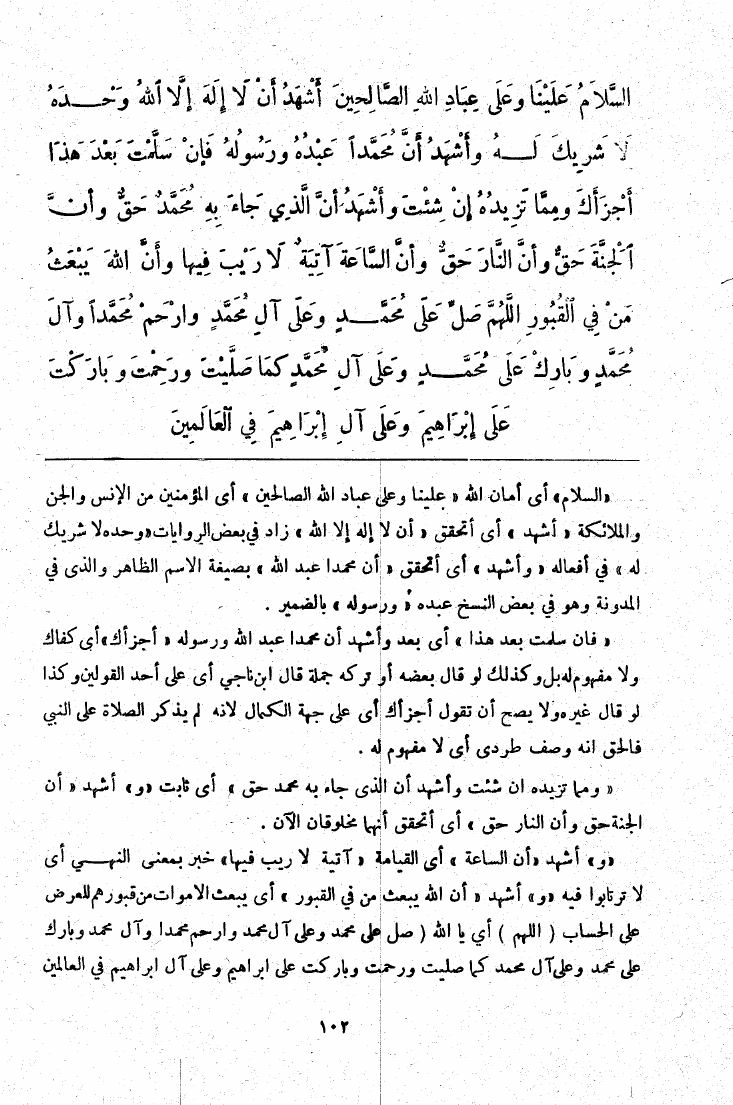 السَّلاَمُ عَلَيْنَا وعَلَى عِبَادِ اللهِ الصَّالِحِينَ أَشْهَدُ أَنْ لَا إِلَهَ إِلَّا اَللهُ وَحْـــدَهُ
لَا شَرِيكَ لَـــهُ وأَشْهَدُ أَنَّ مُحَمَّداً عَبْدُهُ ورَسُولُهُ فَإِنْ سَلَّمْتَ بَعْدَ هَذَا
أَجْزَأَكَ ومِمَّا تَزِيدُهُ إِنْ شِئْتَ وأَشْهَدُ أَنَّ الَّذِي جَاءَ بِهِ مُحَمَّدٌ حَقٌّ وأَنَّ
اَلْجَنَّةَ حَقٌّ وأَنَّ النَّارَ حَقٌّ وأَنَّ السَّاعَةَ آتِيَةٌ لَا رَيْبَ فِيها وأَنَّ اللهَ يَبْعَثُ
مَنْ فِي اَلْقُبُورِ اللَّهُمَّ صَلِّ عَلَى مُحَمَّـــدٍ وعَلَى آلِ مُحَمَّدٍ وارْحَمْ مُحَمَّداً وآلَ
مُحَمَّدٍ وبَارِكْ عَلَى مُحَمَّـــدٍ وعَلَى آلِ مُحَمَّدٍ كَمَا صَلَّيْتَ ورَحِمْتَ وبَارَكْتَ
عَلَى إِبْرَاهِيمَ وَعَلَى آلِ إِبْرَاهِيمَ فِي اَلْعَالَمِينَ
«السلام» أى أمان الله « علينا وعلى عباد الله الصالحين » أى المؤمنين من الإنس والجن
والملائكة « أشهد » أى أتحقق « أن لا إله إلا الله » زاد في بعض الروايات «وحده لا شريك
له » في أفعاله « وأشهد » أى أتحقق « أن محمدا عبد الله » بصيغة الاسم الظاهر والذى في
المدونة وهو في بعض النسخ عبده « ورسوله » بالضمير .
« فان سلمت بعد هذا » أى بعد وأشهد أن محمدا عبد الله ورسوله « أجزأك» أى كفاك
ولا مفهوم له بل وكذلك لو قال بعضه أو تركه جملة قال ابن ناجي أى على أحد القولين وكذا
لو قال غيره ولا يصح أن تقول أجزأك أى على جهة الكمال لانه لم يذكر الصلاة على النبي
فالحق انه وصف طردى أى لا مفهوم له .
« ومما تزيده ان شئت وأشهد أن الذى جاء به محمد حق » أى ثابت «و» أشهد « أن
الجنة حق وأن النار حق » أى أتحقق أنهما مخلوقان الآن .
«و» أشهد «أن الساعة » أى القيامة « آتية لا ريب فيها» خبر بمعنى النهـــي أى
لا ترتابوا فيه «و» أشهد « أن الله يبعث من في القبور » أى يبعث الاموات من قبورهم للعرض
على الحساب ( اللهم ) أي يا الله ( صل على محمد وعلى آل محمد وارحم محمدا وآل محمد وبارك
على محمد وعلى آل محمد كما صليت ورحمت وباركت على ابراهيم وعلى آل ابراهيم في العالمين
١٠٢